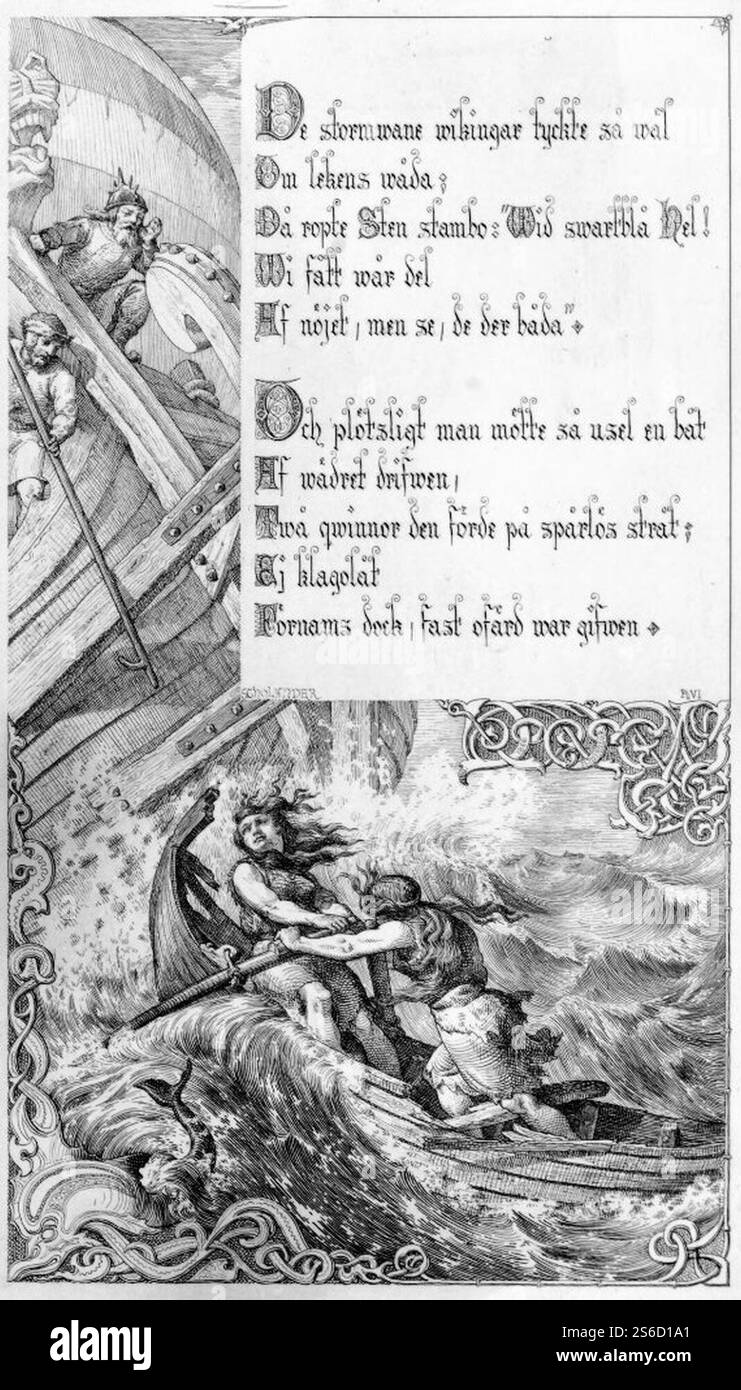 De stormwane wikingar tyckte så wäl
Om lekens wåda;
Då ropte Sten stambo: "Wid swartblå Hel!
Wi fått wår del
Af nöjet, men se, de der båda"
Och plötzligt man mötte så usel en båt
Af wädret drifwen,
Twå qwinnor den förde på spårlös stråt;
Ej klagolåt
Förnams dock, fast ofärd war gifwen
SCHOLANDER
Pl. VI
alamy
Image ID: 2S6D1A1
www.alamy.com